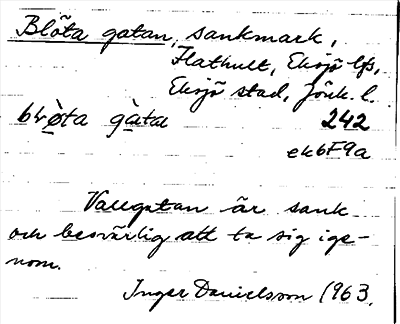 Blöta gatan, sankmark,
Flathult, Eksjö lfs,
Eksjö stad, Jönk. l.
blø̀ta gàta 242
ek6F9a
Vallgatan är sank
och besvärlig att ta sig ige-
nom.
Inger Danielsson 1963.